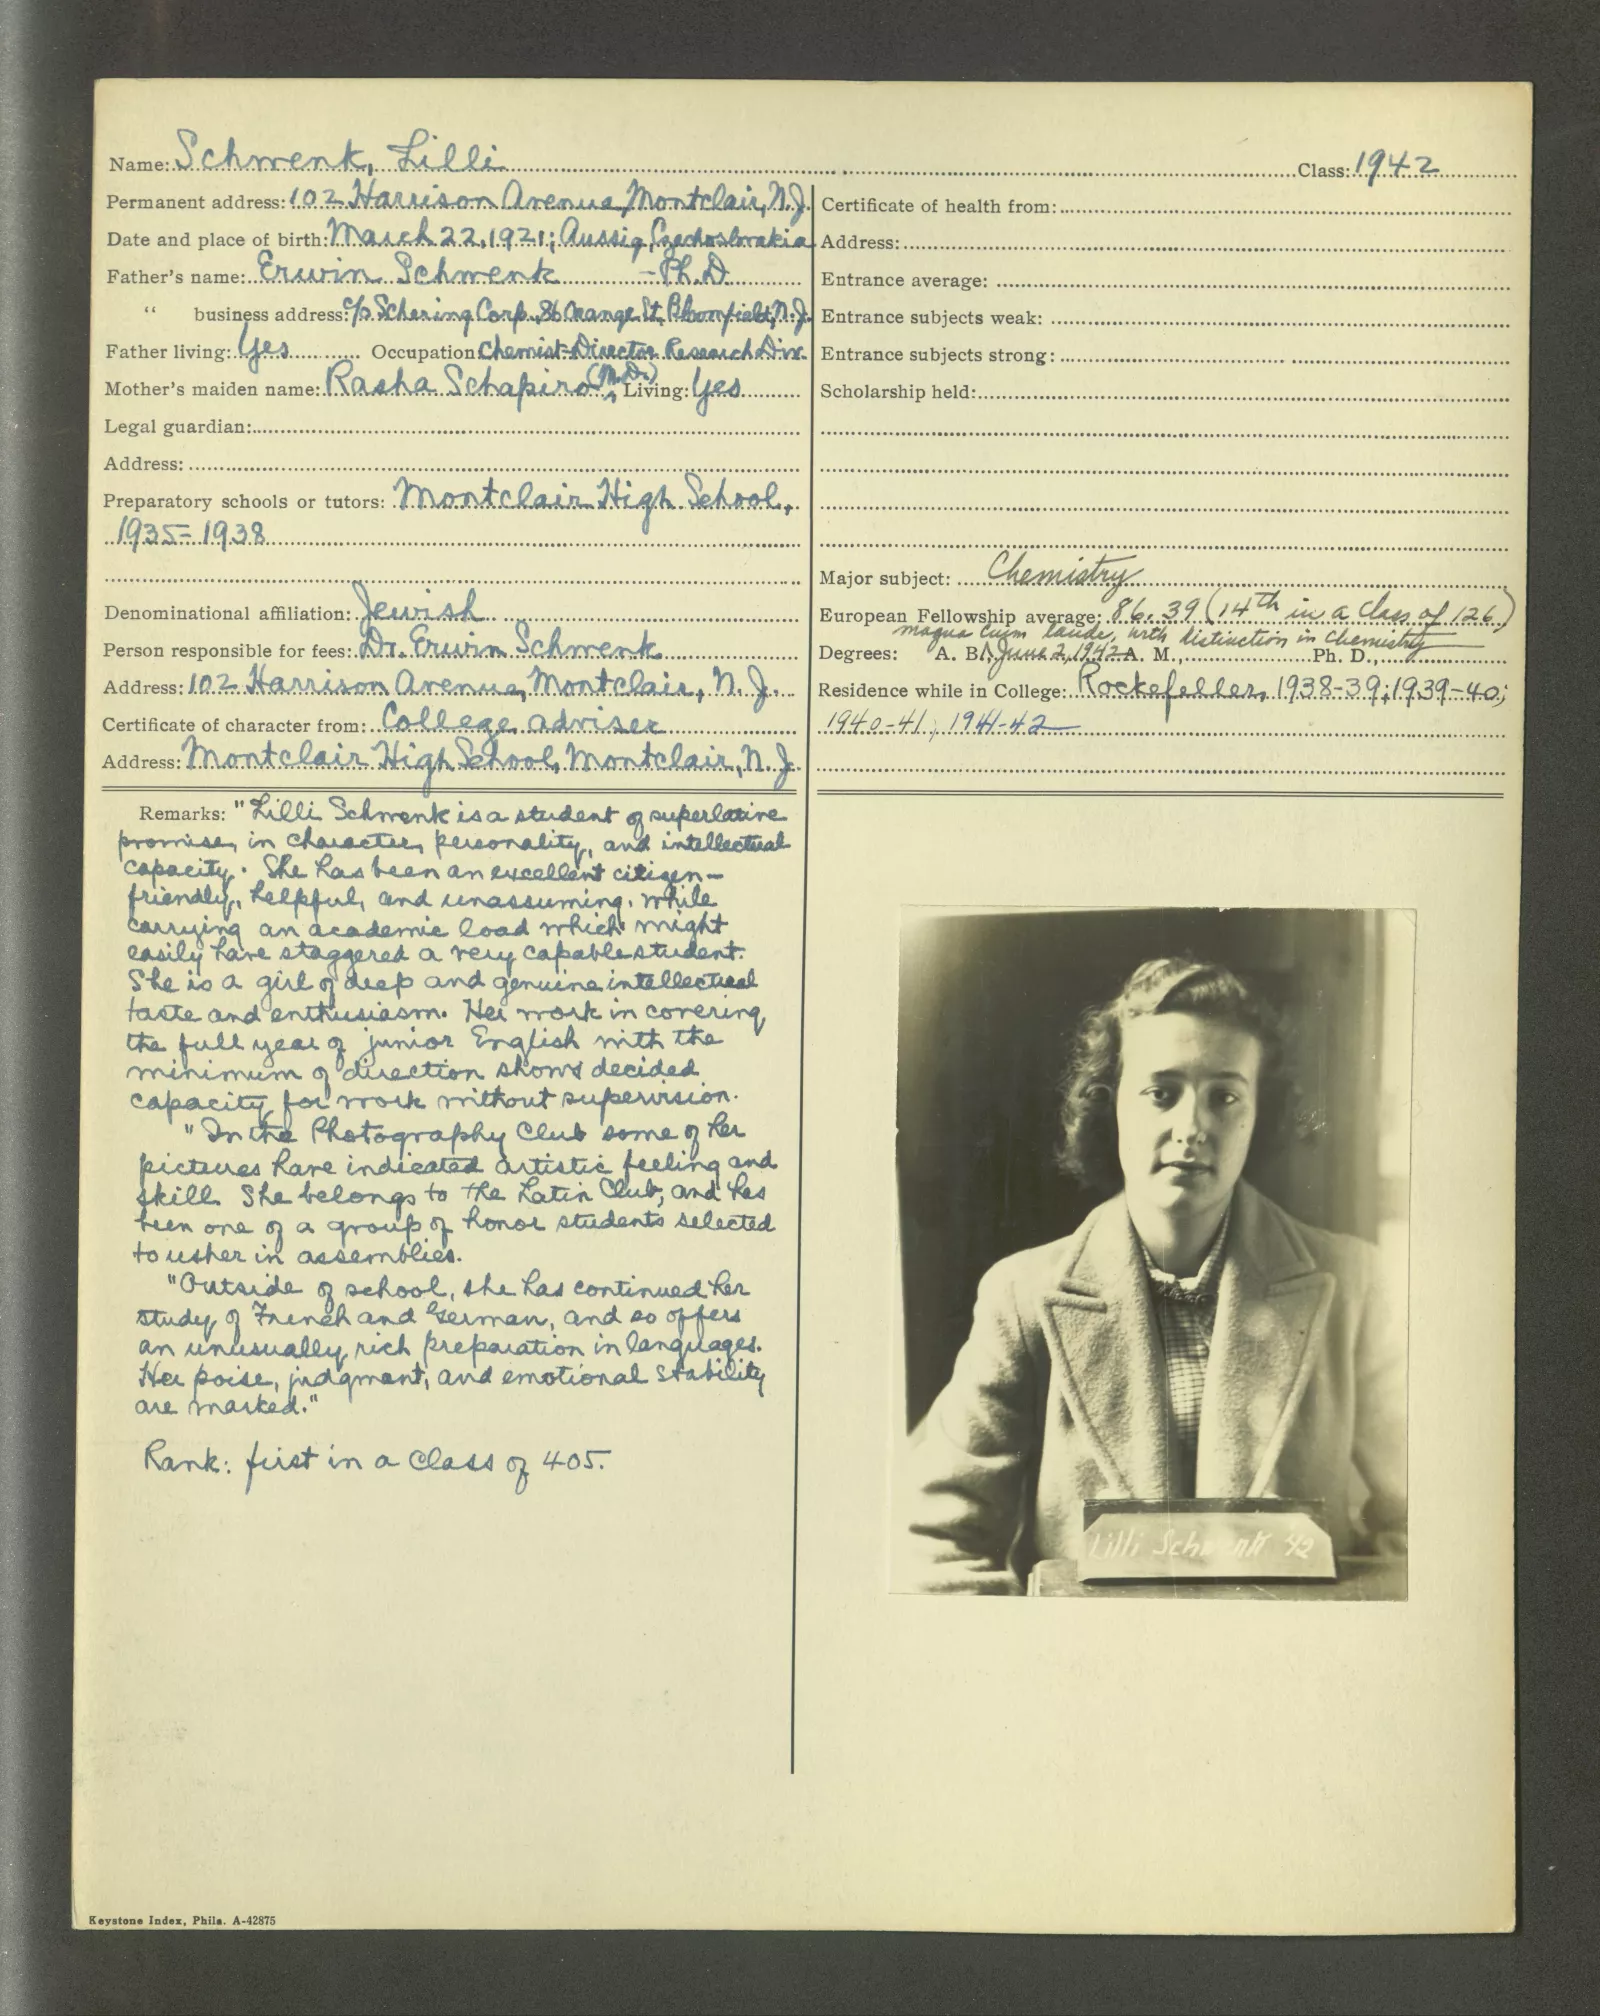 Name: Schwenk, Lilli
Class: 1942
Permanent address: 102 Harrison Avenue, Montclair, N.J.
Date and place of birth: March 22, 1921; Aussig, Czechoslovakia
Father's name: Erwin Schwenk - Ph.D.
" business address: c/o Schering Corp., 86 Orange St., Bloomfield, N.J.
Father living: Yes Occupation Chemist-Director Research Div.
Mother's maiden name: Rasha Schapiro (M.D.), Living: Yes
Legal guardian:
Address:
Preparatory schools or tutors: Montclair High School,
1935-1938
Denominational affiliation: Jewish
Person responsible for fees: Dr. Erwin Schwenk
Address: 102 Harrison Avenue, Montclair, N.J.
Certificate of character from: College adviser
Address: Montclair High School, Montclair, N.J.
Certificate of health from:
Address:
Entrance average:
Entrance subjects weak:
Entrance subjects strong:
Scholarship held:
Major subject: Chemistry
European Fellowship average: 86.39 (14th in a class of 126)
magna cum laude, with distinction in Chemistry
Degrees: A. B., June 2, 1942 A. M., Ph. D.,
Residence while in College: Rockefeller, 1938-39; 1939-40;
1940-41; 1941-42
Remarks: "Lilli Schwenk is a student of superlative
promise, in character, personality, and intellectual
capacity. She has been an excellent citizen-
friendly, helpful, and unassuming, while
carrying an academic load which might
easily have staggered a very capable student.
She is a girl of deep and genuine intellectual
taste and enthusiasm. Her work in covering
the full year of junior English with the
minimum of direction shows decided
capacity for work without supervision.
"In the Photography Club some of her
pictures have indicated artistic feeling and
skill. She belongs to the Latin Club, and has
been one of a group of honor students selected
to usher in assemblies.
"Outside of school, she has continued her
study of French and German, and so offers
an unusually rich preparation in languages.
Her poise, judgment, and emotional stability
are marked."
Rank: first in a class of 405.
Lilli Schwenk 42
Keystone Index, Phila. A-42875